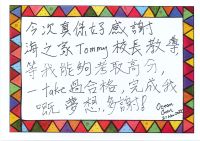 今次真係好感謝
海之家Tommy校長教導
等我能夠考取高分，
一take過合格，完成我
嘅夢想，多謝！